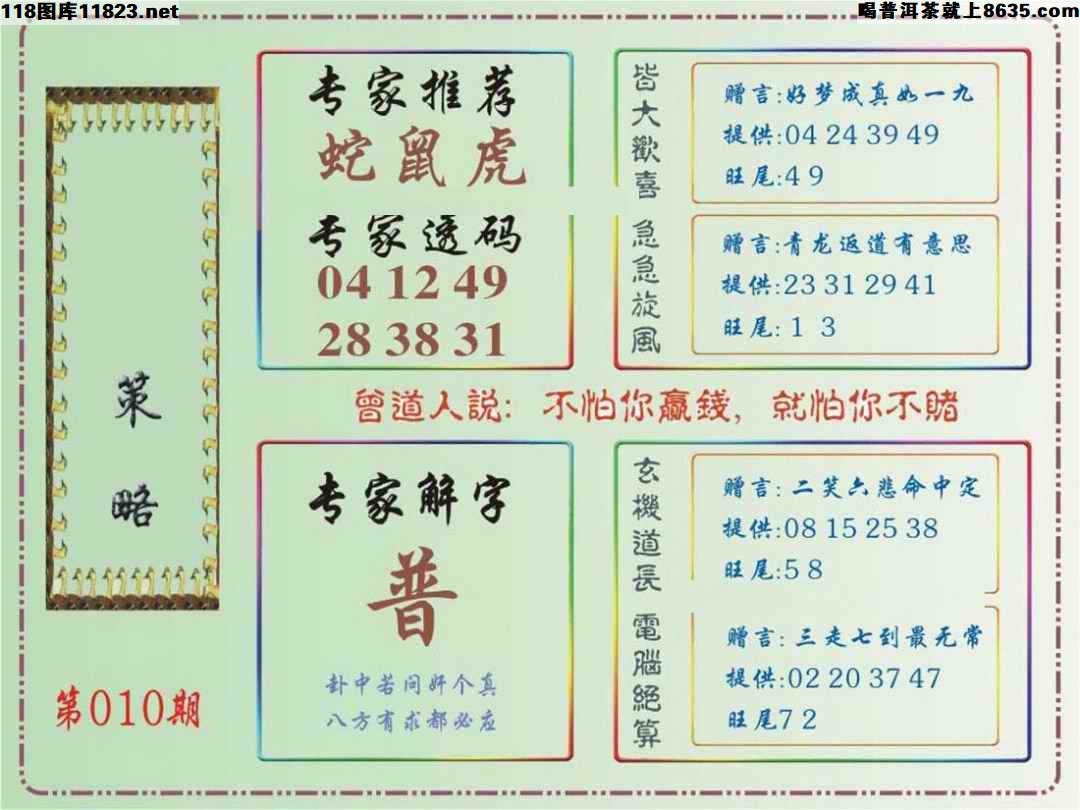 118图库11823.net
喝普洱茶就上8635.com
策略
第010期
专家推荐
蛇鼠虎
专家透码
04 12 49
28 38 31
皆大歡喜
赠言:好梦成真如一九
提供:04 24 39 49
旺尾:4 9
急急旋風
赠言:青龙返道有意思
提供:23 31 29 41
旺尾:1 3
曾道人説:不怕你贏錢,就怕你不賭
专家解字
普
卦中若问奸个真
八方有求都必应
玄機道長
赠言:二笑六悲命中定
提供:08 15 25 38
旺尾:5 8
電腦絕算
赠言:三走七到最无常
提供:02 20 37 47
旺尾7 2